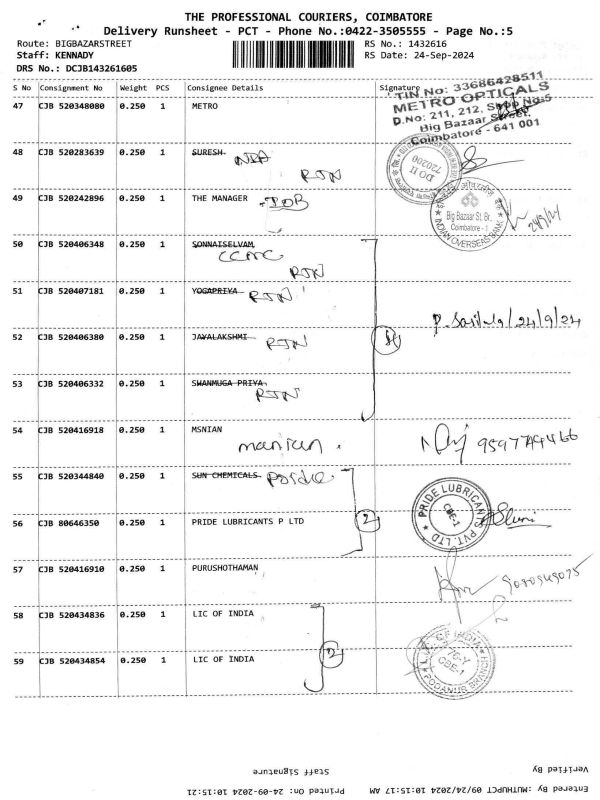 THE PROFESSIONAL COURIERS, COIMBATORE
Delivery Runsheet - PCT - Phone No.:0422-3505555 - Page No.:5
Route: BIGBAZARSTREET
RS No.: 1432616
Staff: KENNADY
RS Date: 24-Sep-2024
DRS No.: DCJB143261605
S No Consignment No Weight PCS Consignee Details Signature
47 CJB 520348080 0.250 1 METRO
TIN No: 33686428511
METRO OPTICALS
D.No: 211, 212, Shop No:5
Big Bazaar Street,
Coimbatore - 641 001
48 CJB 520283639 0.250 1 SURESH
RTN
DO II
720200
49 CJB 520242896 0.250 1 THE MANAGER
IOB
Big Bazaar St. Br.
Coimbatore - 1
INDIAN OVERSEAS BANK
24/9/24
50 CJB 520406348 0.250 1 SONNAISELVAM
CCMC
RTN
51 CJB 520407181 0.250 1 YOGAPRIYA RTN
/24/9/24
52 CJB 520406380 0.250 1 JAYALAKSHMI RTN
53 CJB 520406332 0.250 1 SHANMUGA PRIYA
RTN
54 CJB 520416918 0.250 1 MSNIAN
manian.
55 CJB 520344840 0.250 1 SUN CHEMICALS
PRIDE LUBRICANTS PVT. LTD
CBE-1
56 CJB 80646350 0.250 1 PRIDE LUBRICANTS P LTD
2
57 CJB 520416910 0.250 1 PURUSHOTHAMAN
58 CJB 520434836 0.250 1 LIC OF INDIA
59 CJB 520434854 0.250 1 LIC OF INDIA
2
L.I.C. OF INDIA
76-Y
CBE-1
PODANUR BRANCH
Staff Signature
Verified By
Entered By :MUTHUPCT 09/24/2024 10:15:17 AM
Printed On: 24-09-2024 10:15:21